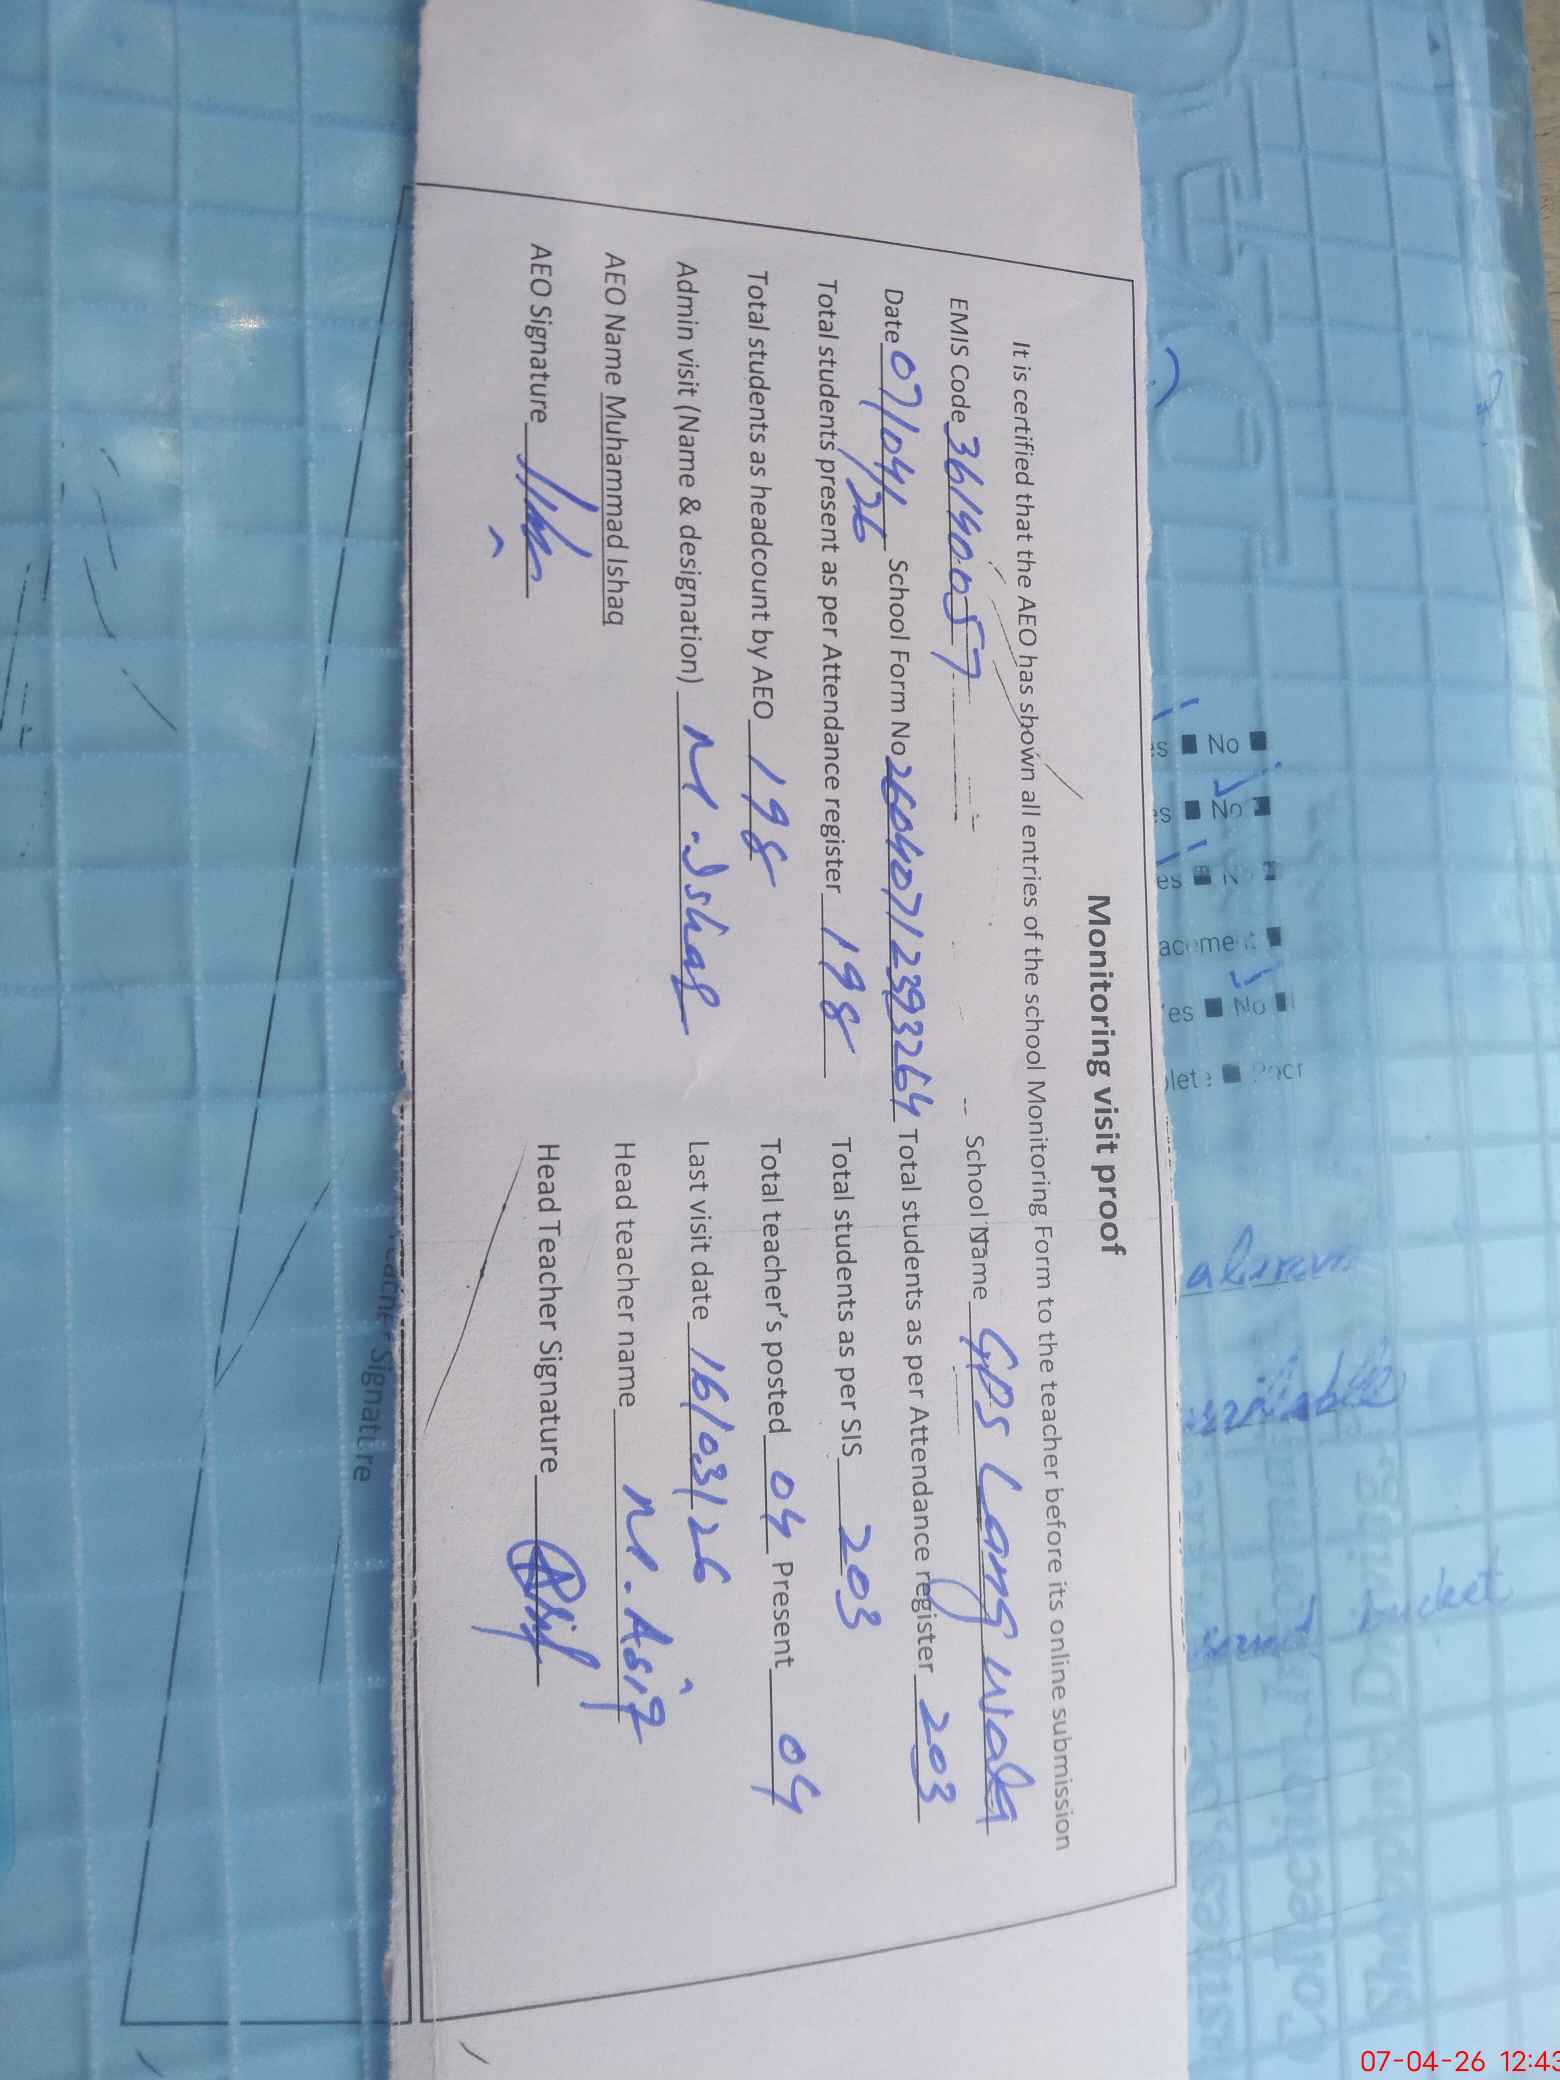 Monitoring visit proof
It is certified that the AEO has shown all entries of the school Monitoring Form to the teacher before its online submission
EMIS Code 36140057 School Name GPS Lang wala
Date 07/04/26 School Form No 26040712393264 Total students as per Attendance register 203
Total students present as per Attendance register 198 Total students as per SIS 203
Total students as headcount by AEO 198 Total teacher's posted 04 Present 04
Admin visit (Name & designation) M. Ishaq Last visit date 16/03/26
AEO Name Muhammad Ishaq Head teacher name M. Asif
AEO Signature Head Teacher Signature Asif
No
No
es
No
lete
available
bucket
Signature
07-04-26 12:43